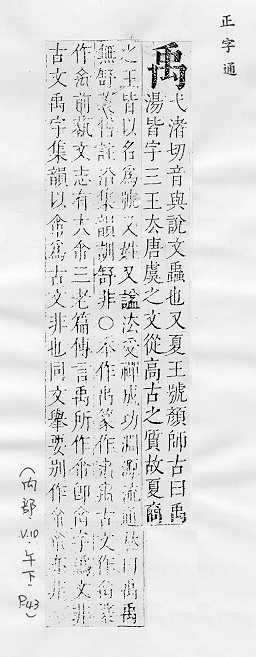 正字通
禹
弋渚切音與說文蟲也又夏王號顏師古曰禹
湯皆字三王去唐虞之文從高古之質故夏商
之王皆以名爲號又姓又諡法受禪成功淵源流通𠀤曰禹
無舒 集韻訓舒非○本作 篆作 古文作
作 前藝文志有大 三老篇傳言禹所作 卽 字爲文非
古文禹字集韻以 爲古文非也同文舉要別作 非
(内部.V.10午下.P.43)